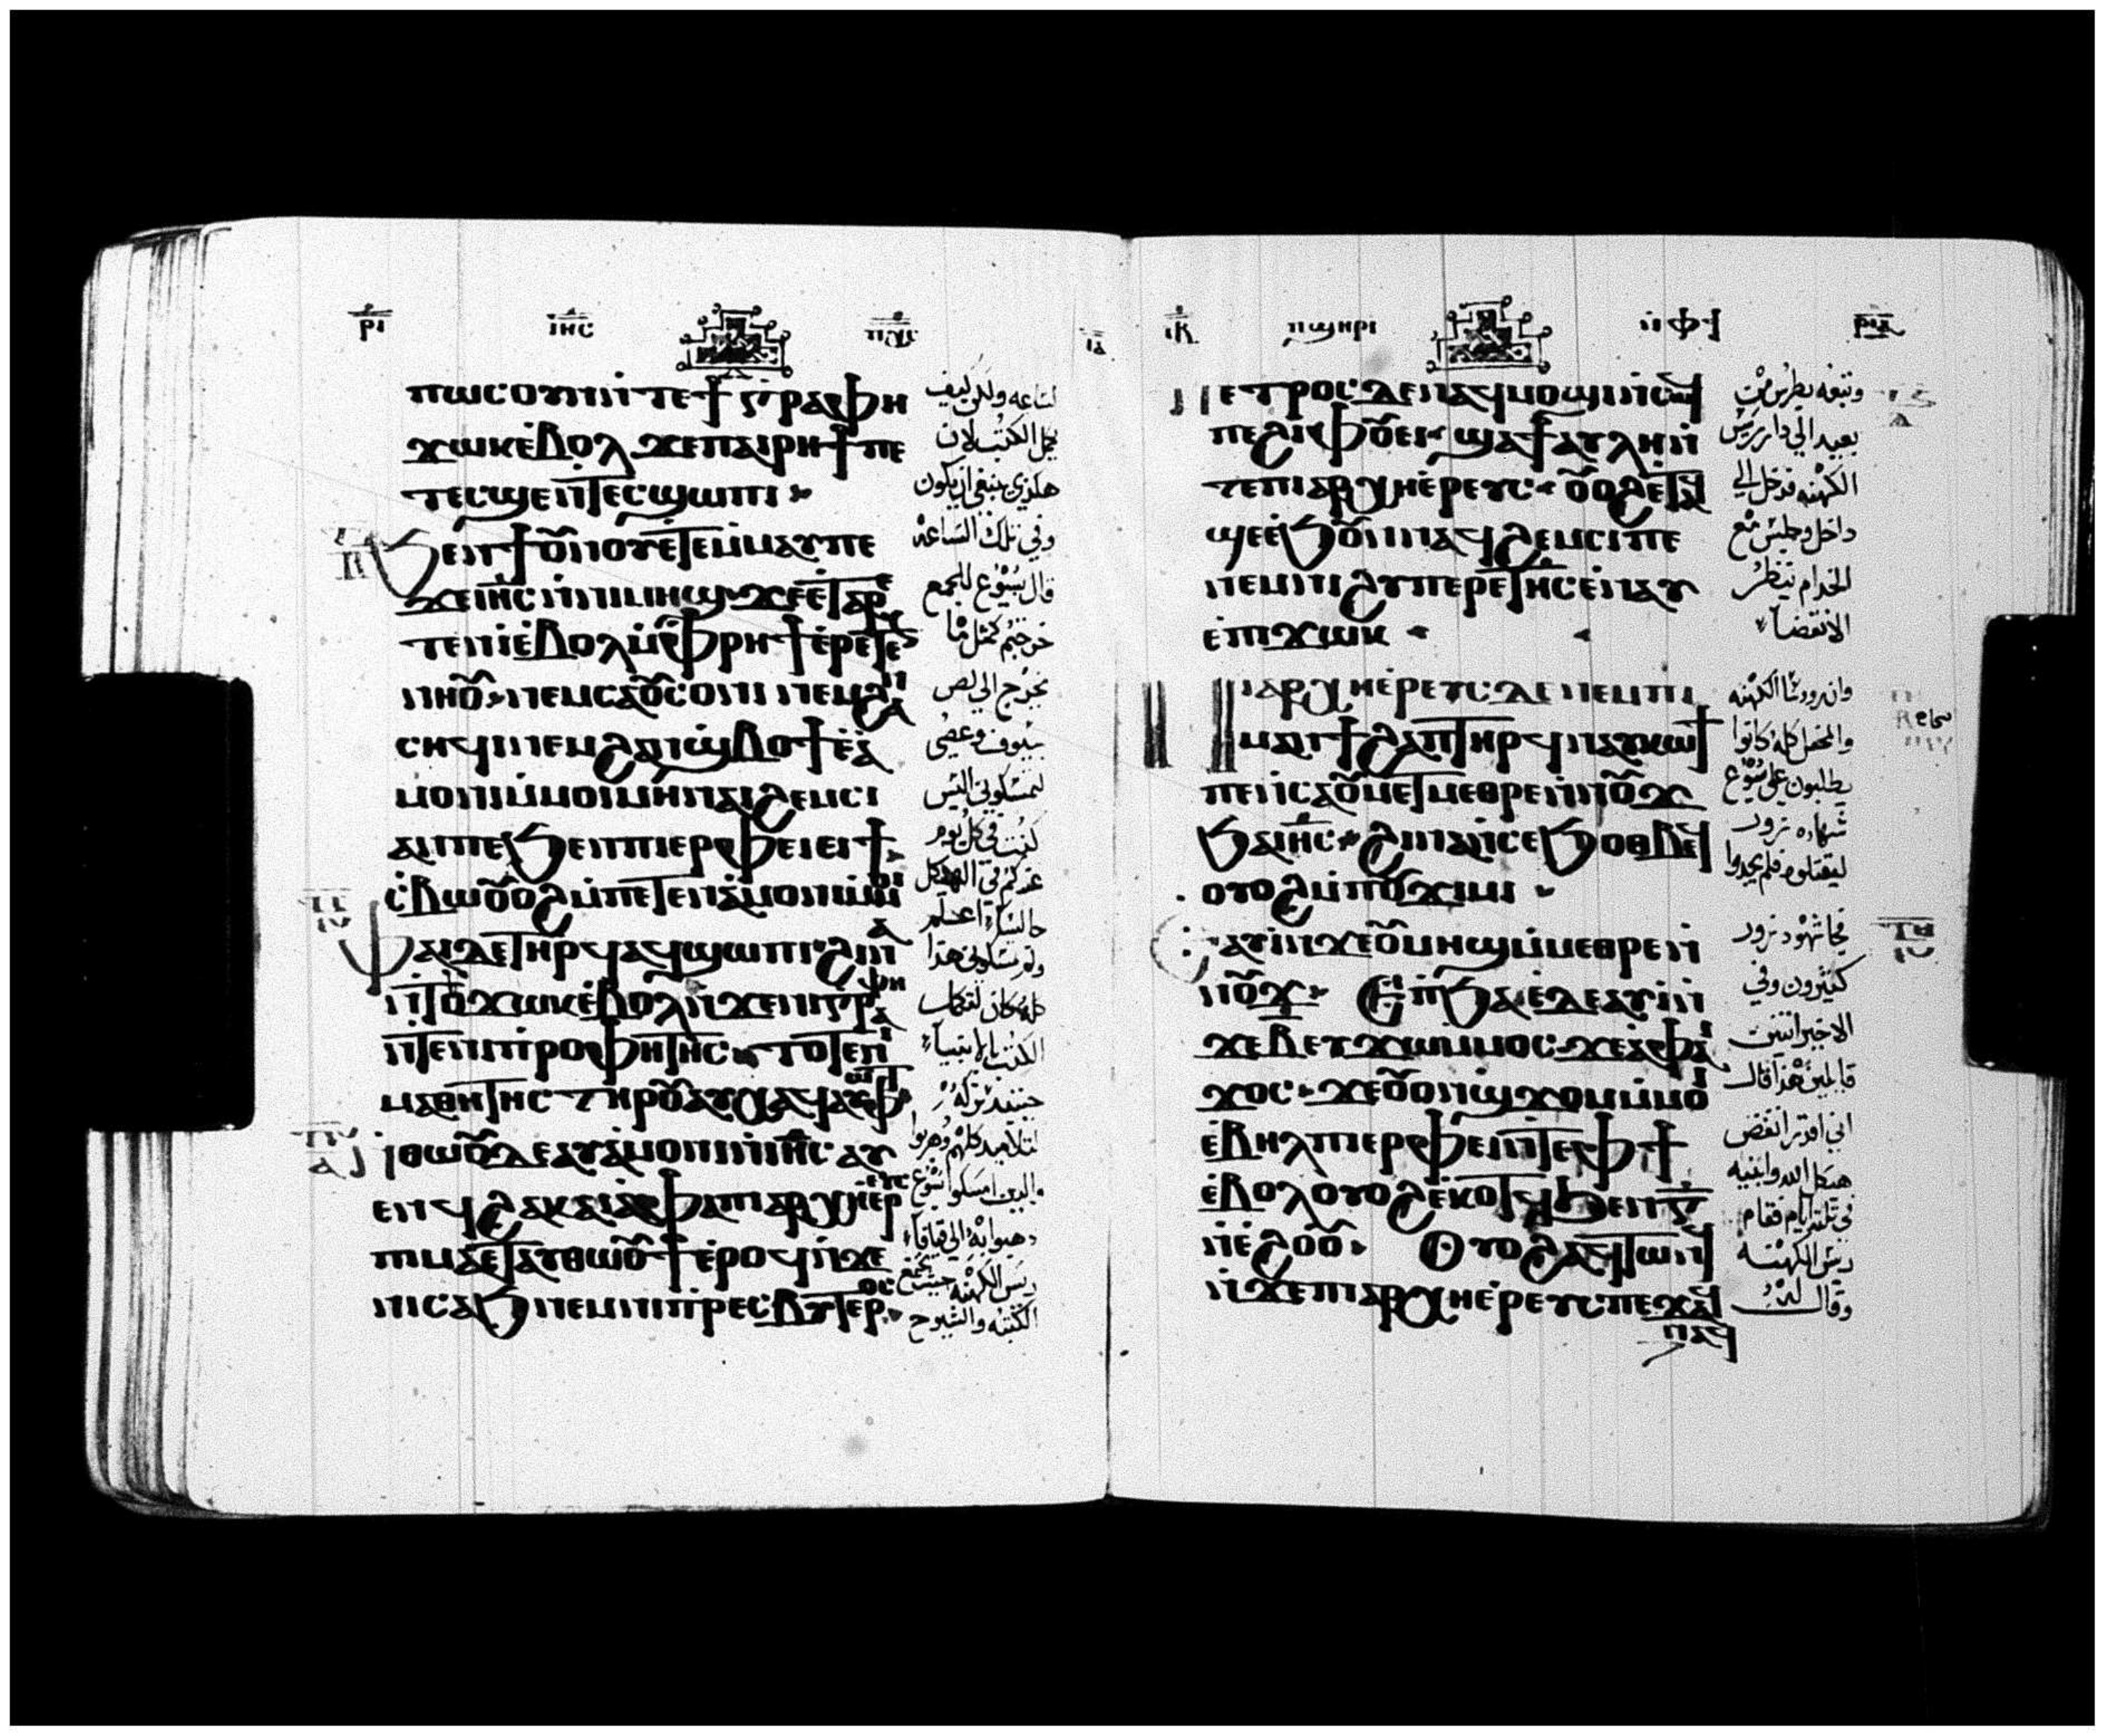 ⲣⲓ ⲓⲏⲥ ⲡⲭⲥ ⲓⲁ
ⲡⲱⲥⲟⲩⲛⲛ̀ⲧⲉϯⲅⲣⲁⲫⲏ
ϫⲱⲕⲉ̀ⲃⲟⲗ ϫⲉⲡⲁⲓⲣⲏϯⲡⲉ
ⲧⲉⲥϣⲉⲛ̀ⲧⲉⲥϣⲱⲡⲓ
ϧⲉⲛϯⲟⲩⲛⲟⲩⲉ̀ⲧⲉⲙ̀ⲙⲁⲩⲡⲉ
ϫⲉⲓⲏⲥⲛ̀ⲛⲓⲙⲏϣ ϫⲉⲉ̀ⲧⲁⲣⲉ
ⲧⲉⲛⲓ̀ⲉ̀ⲃⲟⲗⲙ̀ⲫⲣⲏϯⲉ̀ⲣⲉⲧⲉⲥ
ⲛⲛⲏⲟⲩ ⲛⲉⲙⲥⲁⲟⲩⲥⲟⲛⲓ ⲛⲉⲙϩⲁⲛ
ⲥⲏϥⲓⲛⲉⲙϩⲁⲛϣⲃⲟϯⲉ̀ⲁ̀
ⲙⲟⲛⲓⲙ̀ⲙⲟⲓⲙⲏⲛⲁⲓϩⲉⲙⲥⲓ
ⲁⲛⲡⲉϧⲉⲛⲡⲓⲉⲣⲫⲉⲓⲉⲓϯ
ⲥ̀ⲃⲱⲟⲩⲟϩⲙ̀ⲡⲉⲧⲉⲛⲁ̀ⲙⲟⲛⲓⲙ̀ⲙⲟⲓ
ⲫⲁⲓⲇⲉⲧⲏⲣϥⲁϥϣⲱⲡⲓϩⲓⲛⲁ
ⲛ̀ⲧⲟⲩϫⲱⲕⲉ̀ⲃⲟⲗⲛ̀ϫⲉⲛⲓⲅⲣⲁⲫⲏ
ⲛ̀ⲧⲉⲛⲓⲡⲣⲟⲫⲏⲧⲏⲥ ⲧⲟⲧⲉⲛⲓ
ⲙⲁⲑⲏⲧⲏⲥ ⲧⲏⲣⲟⲩⲁⲩⲭⲁϥⲁⲩⲫⲱⲧ
ⲛⲑⲱⲟⲩⲇⲉⲁⲩⲁ̀ⲙⲟⲛⲓⲛ̀ⲓⲏⲥⲁⲩ
ⲉⲛϥϩⲁⲕⲁⲓⲁ̀ⲫⲁⲡⲓⲁⲣⲭⲓⲉ̀ⲣⲉⲩⲥ
ⲡⲓⲙⲁⲉ̀ⲧⲁⲩⲑⲱⲟⲩϯⲉ̀ⲣⲟϥⲛ̀ϫⲉ
ⲛⲓⲥⲁϧ ⲛⲉⲙⲛⲓⲡⲣⲉⲥⲃⲩⲧⲉⲣⲟⲥ
الساعه ولكن كيف
تكمل الكتب لان
هكذى ينبغى ان يكون
وفى تلك الساعه
قال يسوع للجمع
خرجتم كمثل ما
يخرج الى لص
بسيوف وعصى
لتمسكونى اليس
كنت فى كل يوم
عندكم فى الهيكل
جالسا اعلم
ولم تمسكونى هذا
كله كان لتكمل
الكتب الانبياء
حينئذ تركه
التلاميد كلهم وهربوا
والدين امسكوا يسوع
دهبوا به الى قيافا
ريس الكهنه حيث تجمع
الكتبه والشيوخ
ⲓⲃ ⲡϣⲏⲣⲓ ⲙ̀ⲫϯ ⲣⲓⲁ
ⲡⲉⲧⲣⲟⲥⲇⲉⲛⲁϥⲙⲟϣⲓⲛ̀ⲥⲱϥ
ⲡⲉϩⲓⲫⲟⲩⲉⲓ ϣⲁϯⲁⲩⲗⲏⲛ̀
ⲧⲉⲡⲓⲁⲣⲭⲏⲉ̀ⲣⲉⲩⲥ ⲟⲩⲟϩⲉ̀ⲧⲁϥ
ϣⲉⲉ̀ϧⲟⲩⲛⲛⲁϥϩⲉⲙⲥⲓⲡⲉ
ⲛⲉⲙⲛⲓϩⲩⲡⲉⲣⲉⲧⲏⲥⲉ̀ⲛⲁⲩ
ⲉ̀ⲡⲓϫⲱⲕ
ⲛⲓⲁⲣⲭⲏⲉ̀ⲣⲉⲩⲥⲇⲉ ⲛⲉⲙⲡⲓ
ⲙⲁⲛϯϩⲁⲡⲧⲏⲣϥⲛⲁⲩⲕⲱϯ
ⲡⲉⲛ̀ⲥⲁⲟⲩⲙⲉⲧⲙⲉⲑⲣⲉⲛ̀ⲛⲟⲩϫ
ϧⲁⲓⲏⲥ ϩⲓⲛⲁⲛ̀ⲥⲉϧⲟⲑⲃⲉϥ
ⲟⲩⲟϩⲙ̀ⲡⲟⲩϫⲓⲙⲓ
ⲁⲩⲓ̀ⲛ̀ϫⲉⲟⲩⲙⲏϣⲙ̀ⲙⲉⲑⲣⲉⲛ̀
ⲛⲟⲩϫ ⲉ̀ⲡϧⲁⲉ̀ⲇⲉⲁⲩⲓ̀ⲛ̀
ϫⲉⲃⲉⲩϫⲱⲙ̀ⲙⲟⲥ ϫⲉⲁ̀ⲫⲁⲓ
ϫⲟⲥ ϫⲉⲟⲩⲟⲛϣϫⲟⲙⲙ̀ⲙⲟⲓ
ⲉ̀ⲃⲏⲗⲡⲓⲉⲣⲫⲉⲓⲛ̀ⲧⲉⲫϯ
ⲉ̀ⲃⲟⲗⲟⲩⲟϩⲉ̀ⲕⲟⲧϥϧⲉⲛⲅ̅
ⲛ̀ⲉ̀ϩⲟⲟⲩ ⲟⲩⲟϩⲁϥⲧⲱⲛϥ
ⲛ̀ϫⲉⲡⲓⲁⲣⲭⲏⲉ̀ⲣⲉⲩⲥⲡⲉϫⲁϥ
ⲛⲁϥ
وتبعه بطرس من
بعيد الى دار ريس
الكهنه فدخل الى
داخل وجلس مع
الخدام ينظر
الانقضا
وان روسا الكهنه
والمحفل كله كانوا
يطلبون على يسوع
شهاده زور
ليقتلوه فلم يجدوا
فجا شهود زور
كثيرون وفى
الاخير اتى اثنين
قايلين هذا قال
انى اقدر انقض
هيكل الله وابنيه
فى ثلثة ايام فقام
ريس الكهنه
وقال له